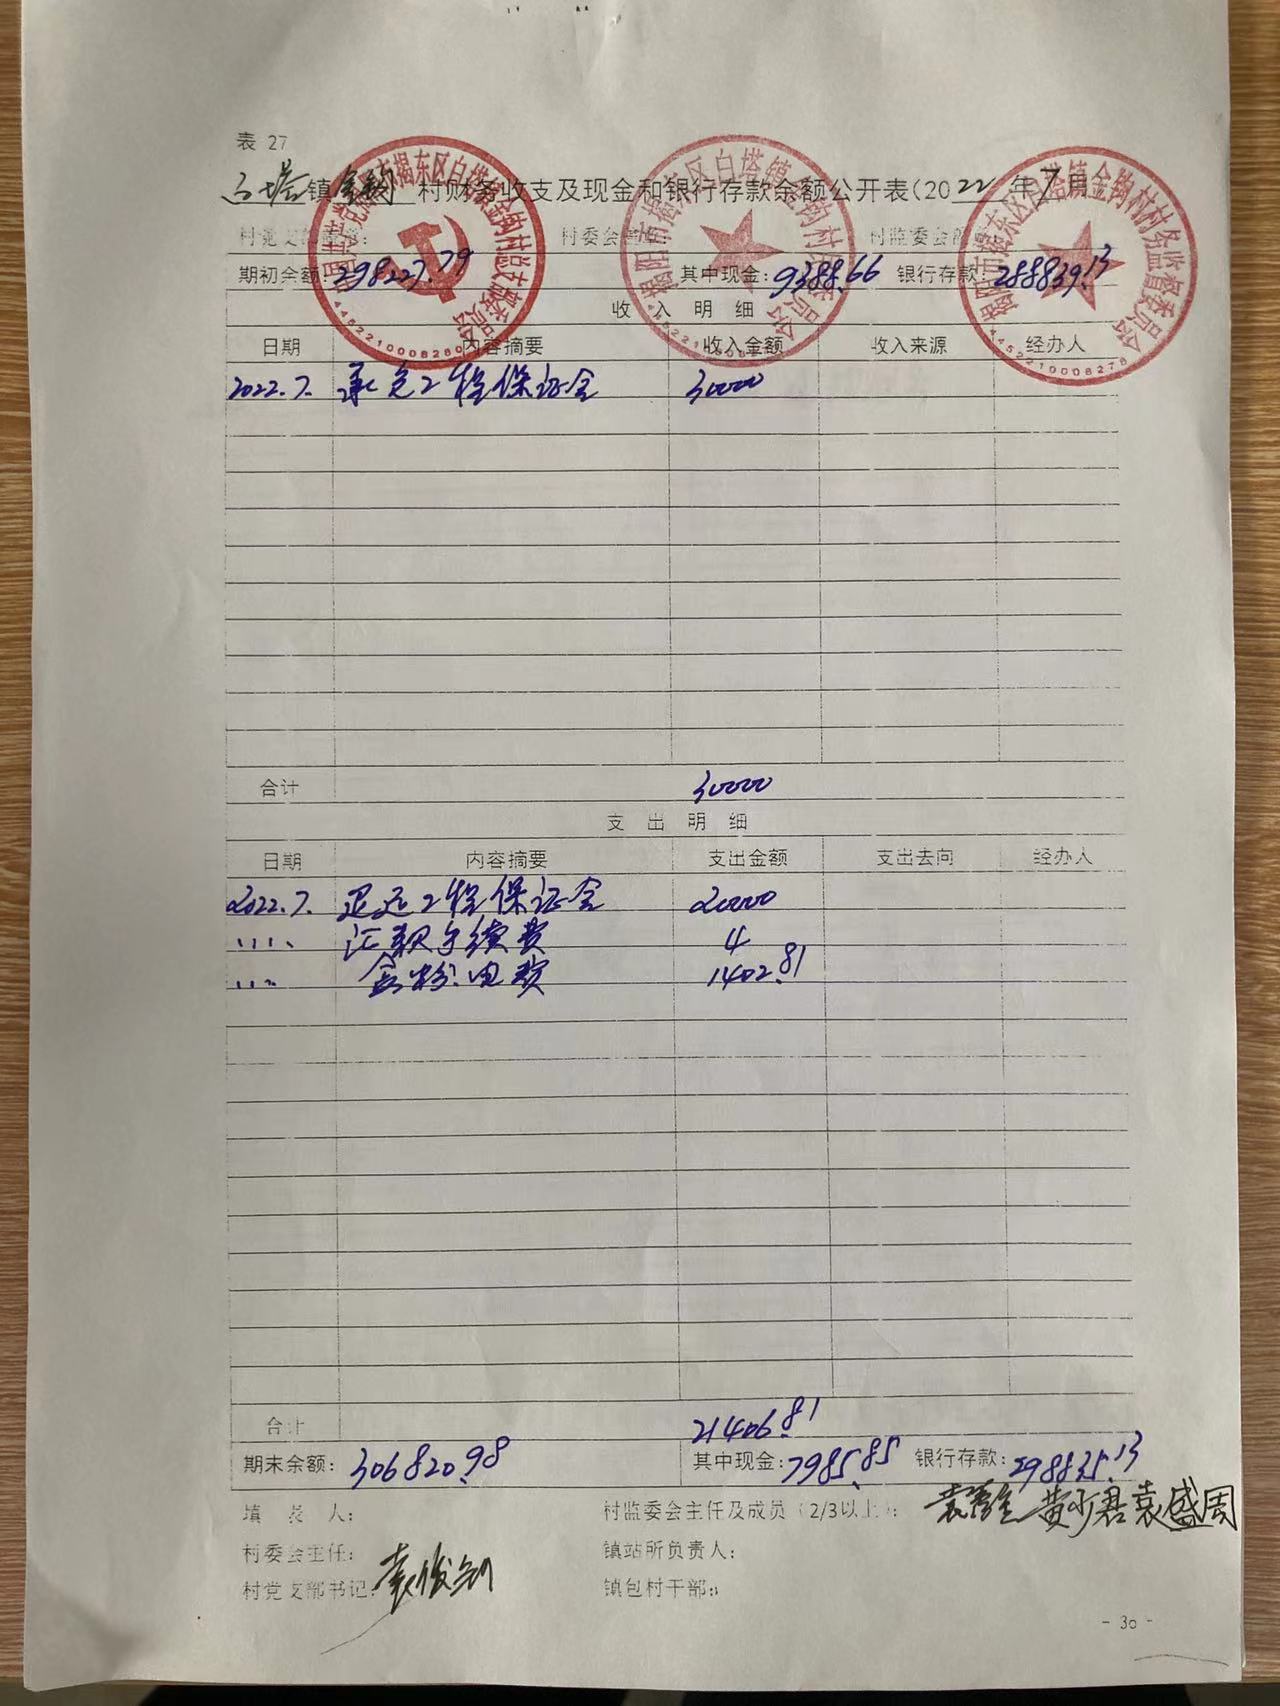 表 27
白塔镇金钩村财务收支及现金和银行存款余额公开表(2022年7月
村党支部盖章: 村委会盖章: 村监委会
期初余额: 298227.79 其中现金: 9388.66 银行存款: 288839.13
收 入 明 细
日期 内容摘要 收入金额 收入来源 经办人
2022.7. 承包工程保证金 30000
合计 30000
支 出 明 细
日期 内容摘要 支出金额 支出去向 经办人
2022.7. 退还工程保证金 20000
汇款手续费 4
电费 1402.81
合计 21406.81
期末余额: 306820.98 其中现金: 7985.85 银行存款: 298835.13
填 表 人: 村监委会主任及成员(2/3以上): 黄少君 袁盛周
村委会主任: 镇站所负责人:
村党支部书记: 袁俊钊 镇包村干部:
- 30 -
揭东区白塔镇金钩村支部委员会
4452210008280
揭阳市揭东区白塔镇金钩村村民委员会
揭阳市揭东区白塔镇金钩村村务监督委员会
4452210008278